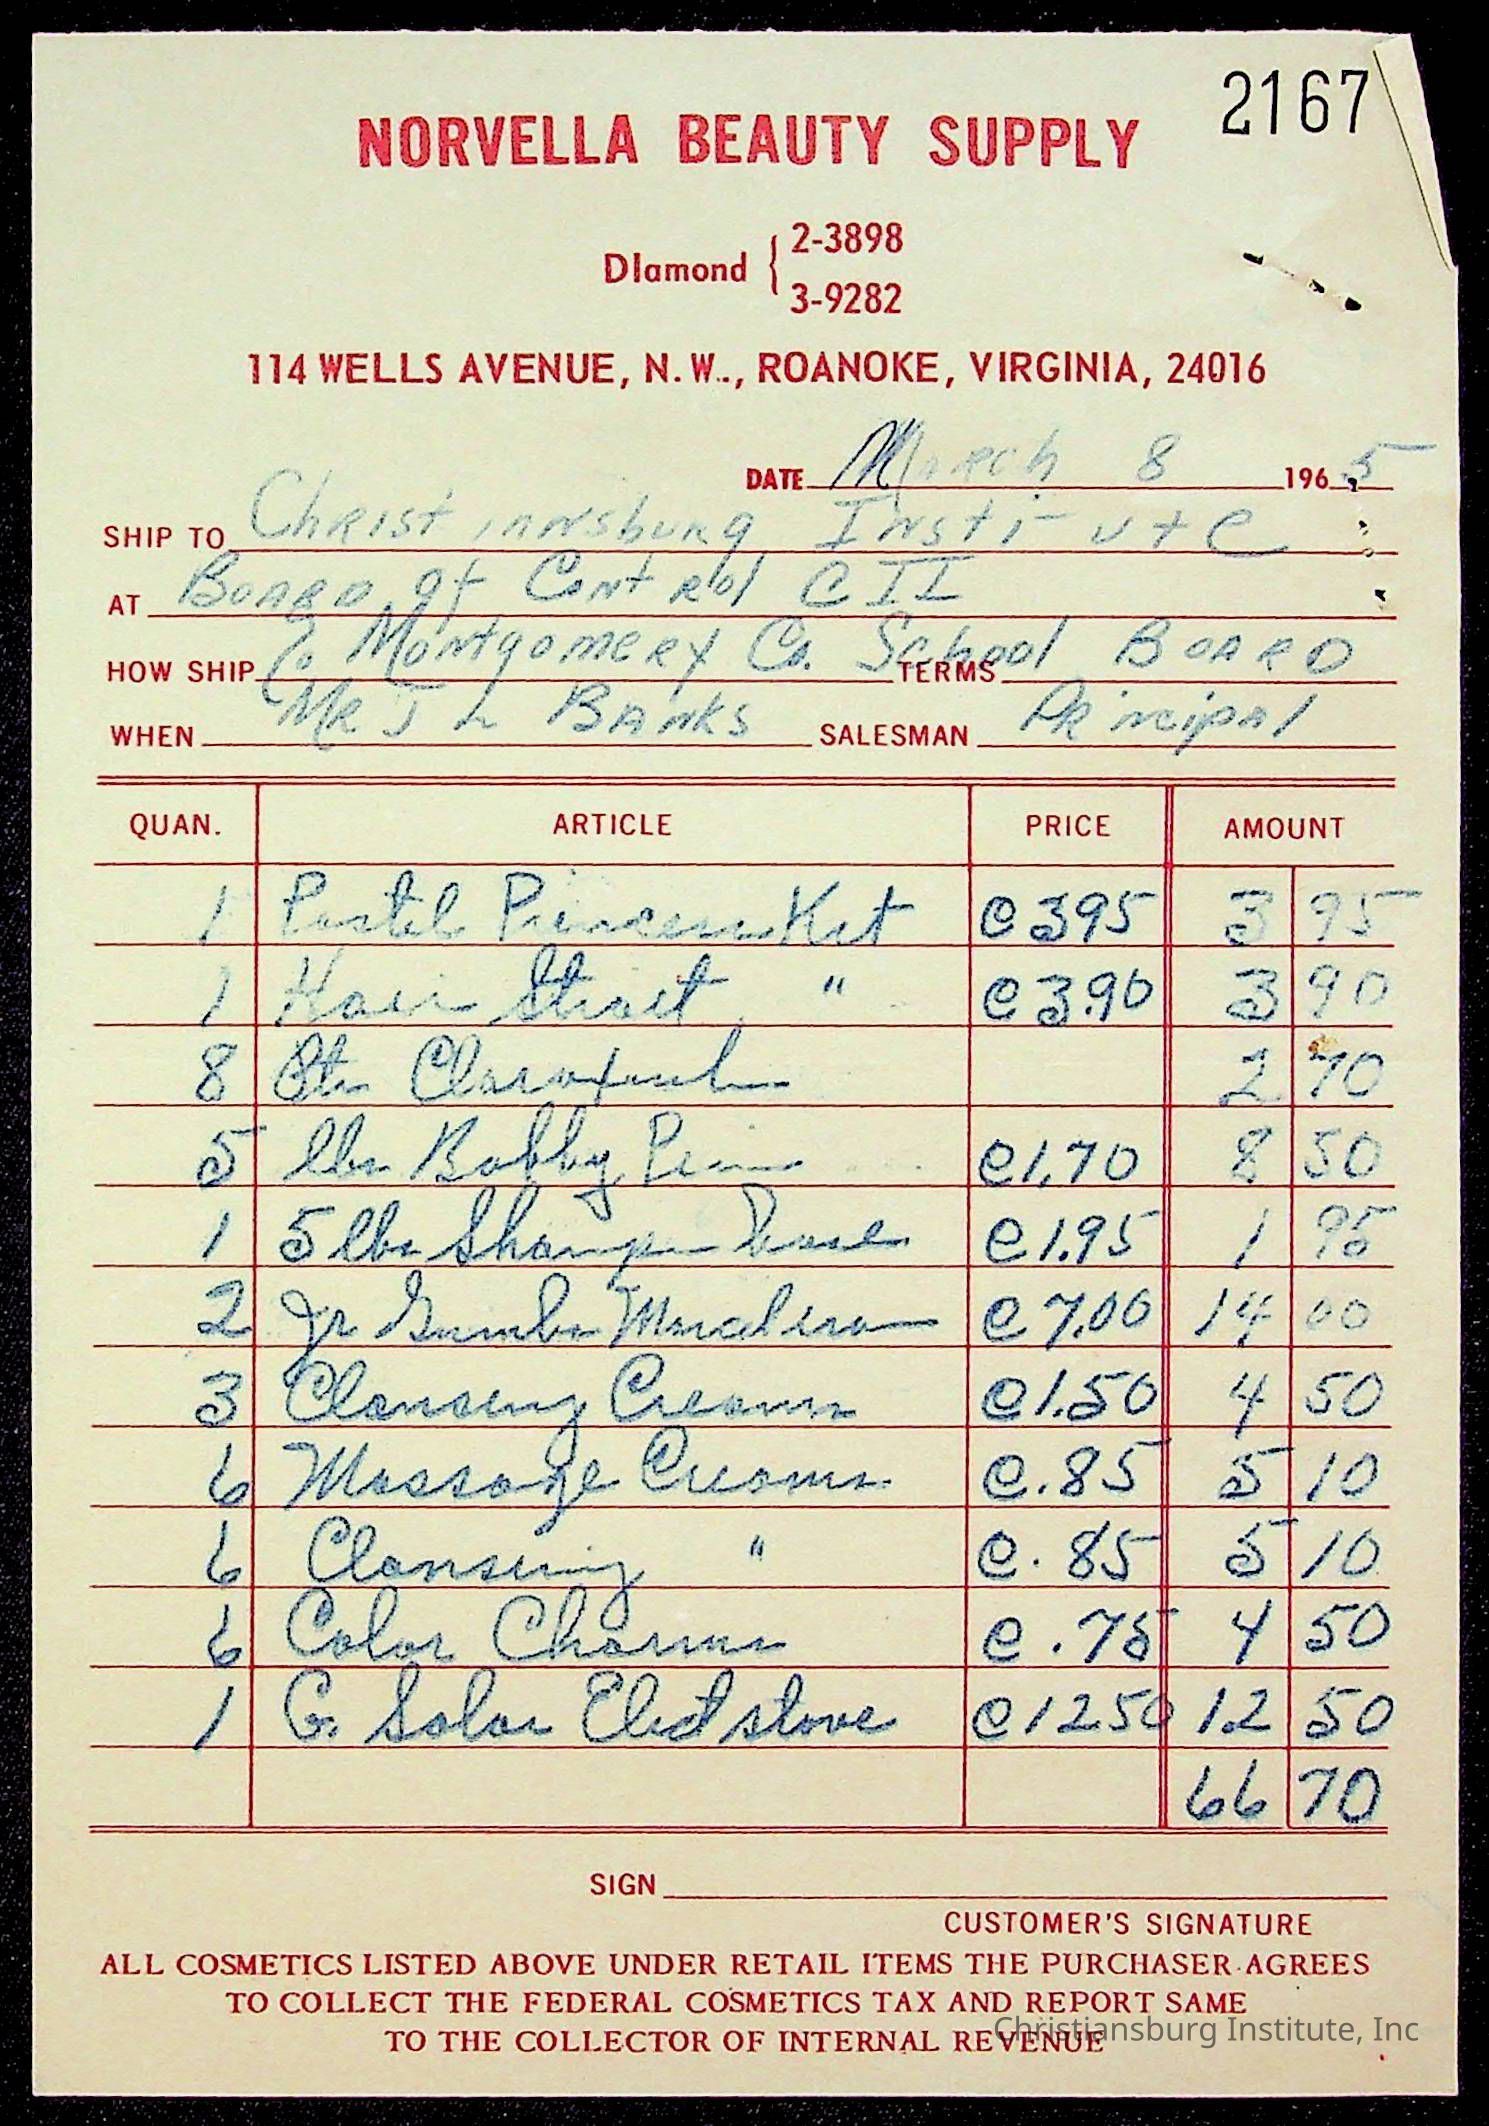 2167
NORVELLA BEAUTY SUPPLY
DIamond { 2-3898
3-9282
114 WELLS AVENUE, N.W.., ROANOKE, VIRGINIA, 24016
DATE March 8 1965
SHIP TO Christiansburg Institute
AT Board of Control CII
HOW SHIP c/o Montgomery Co. School Board TERMS
WHEN Mr J L Banks SALESMAN Principal
QUAN. ARTICLE PRICE AMOUNT
1 Pastel Princess Kit @ 395 3 95
1 Hair Strait " @ 3.90 3 90
8 2 70
5 lbs Bobby Pins @ 1.70 8 50
1 5 lbs @ 1.95 1 95
2 Jr @ 7.00 14 00
3 Clansing Cream @ 1.50 4 50
6 Massage Cream @ .85 5 10
6 Clansing " @ .85 5 10
6 Color Charm @ .75 4 50
1 G. Solar Elect stove @ 12 50 12 50
66 70
SIGN
CUSTOMER'S SIGNATURE
ALL COSMETICS LISTED ABOVE UNDER RETAIL ITEMS THE PURCHASER AGREES
TO COLLECT THE FEDERAL COSMETICS TAX AND REPORT SAME
TO THE COLLECTOR OF INTERNAL REVENUE
Christiansburg Institute, Inc